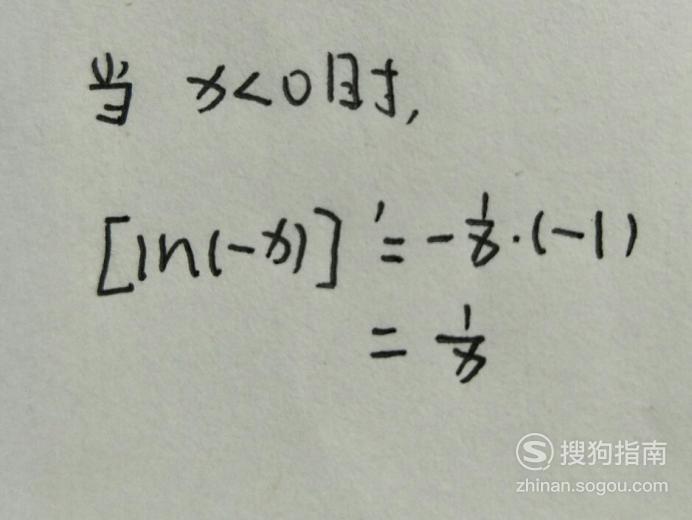 当 x<0时,
[ln(-x)]'=-1/x·(-1)
=1/x
搜狗指南
zhinan.sogou.com